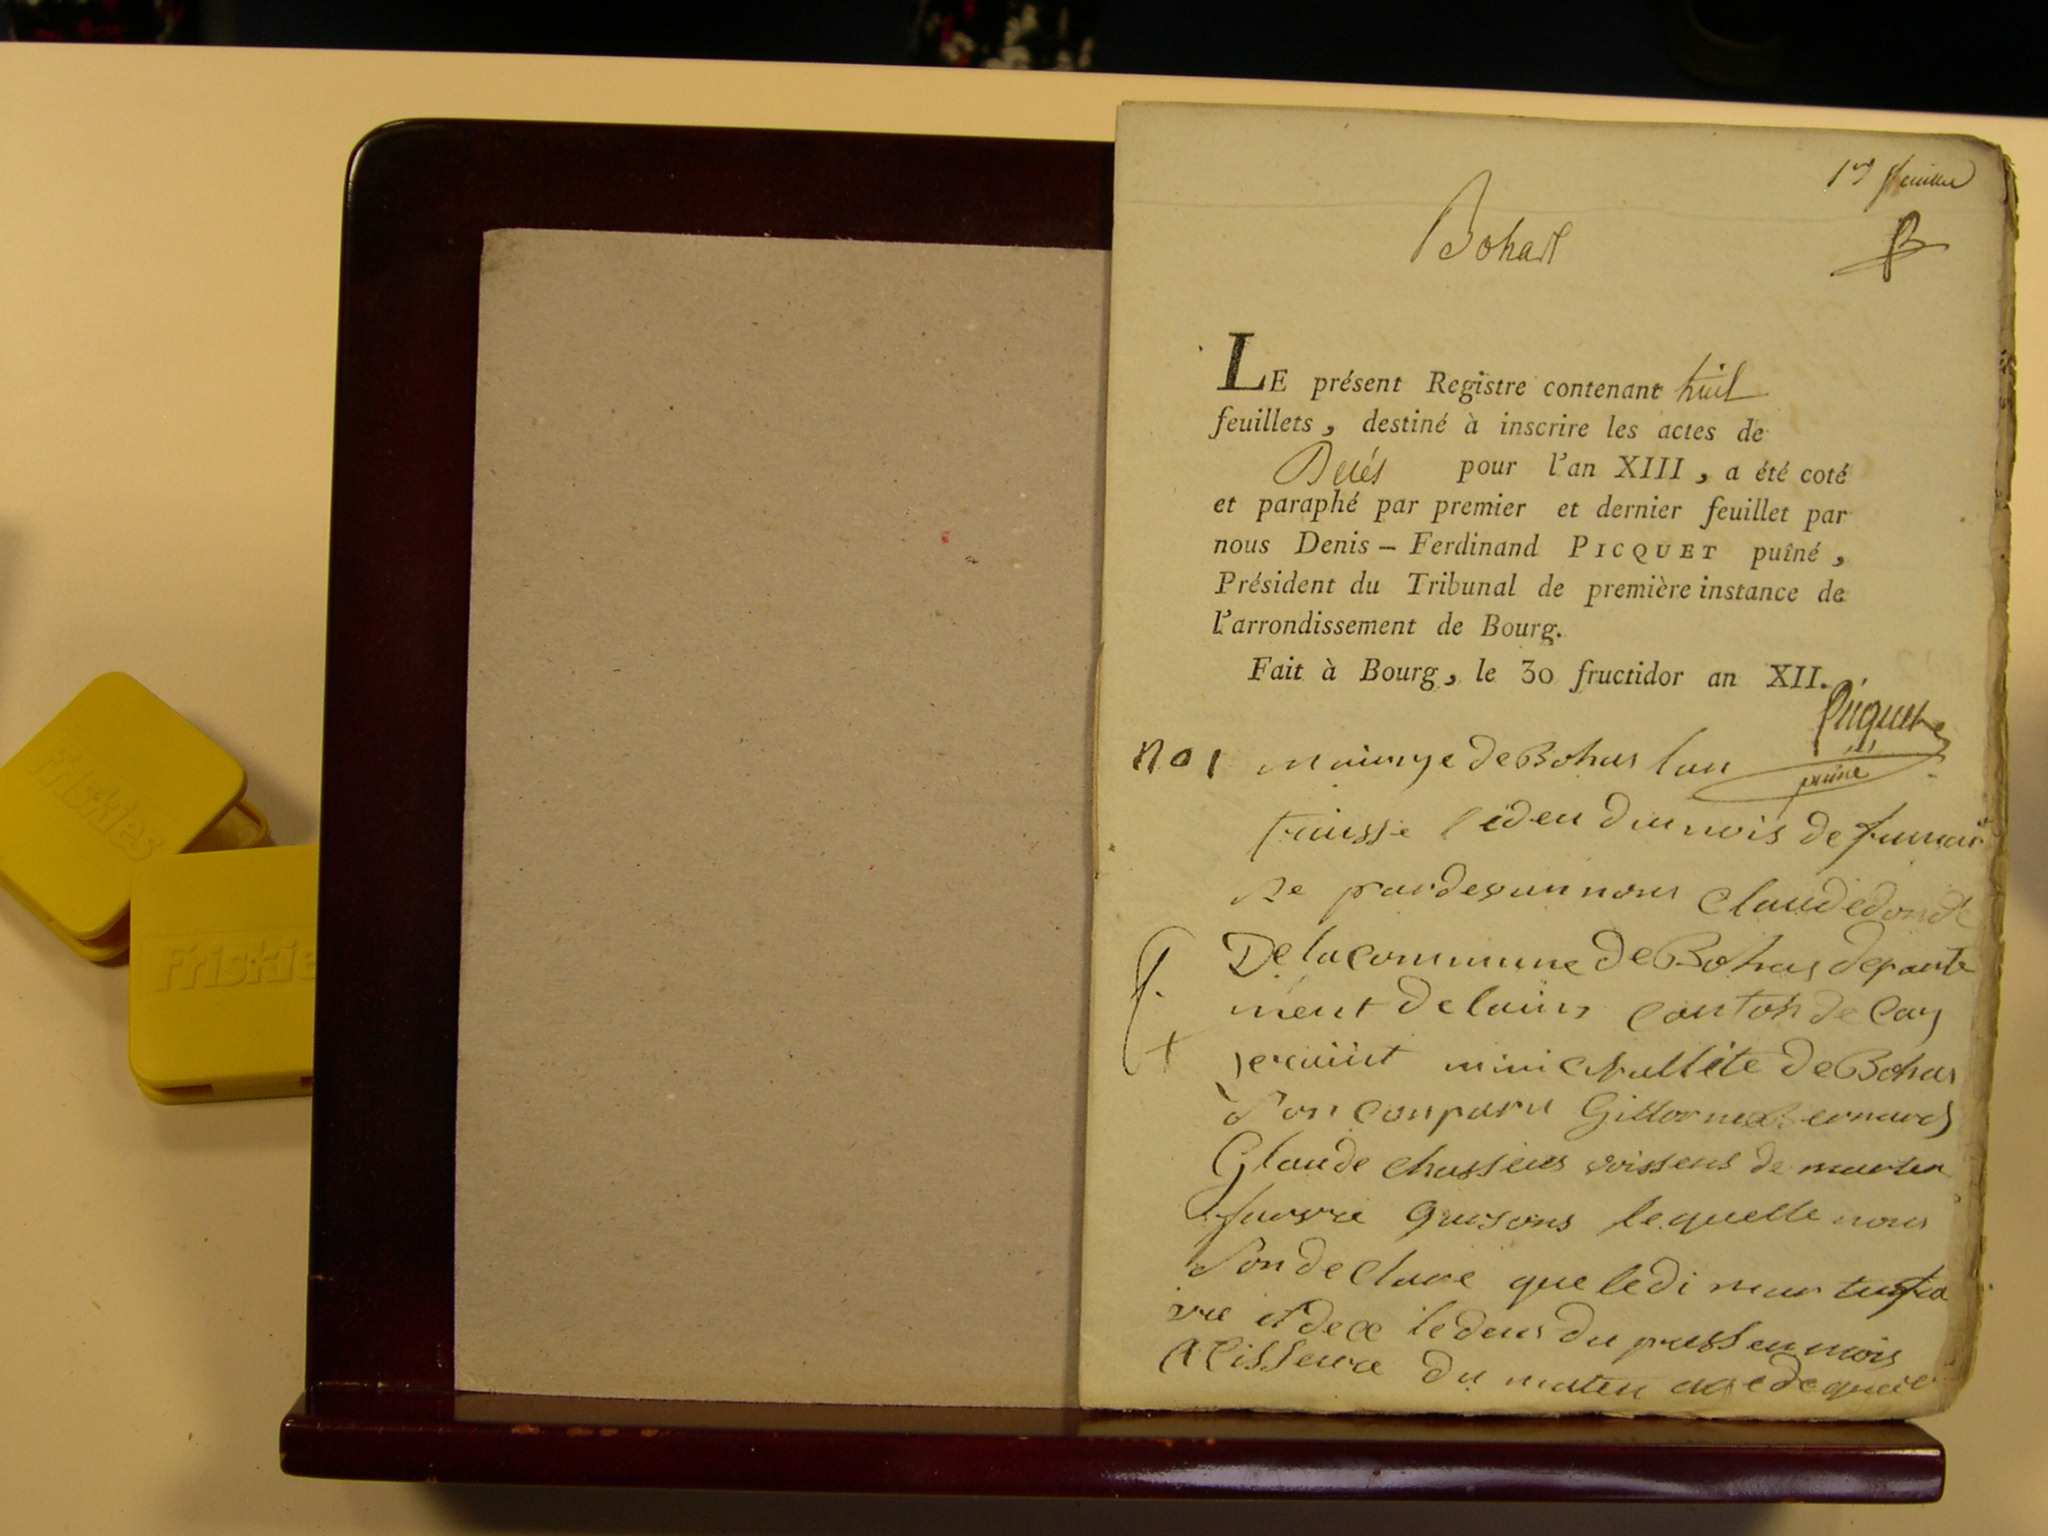 1er feuillet
Bohas
LE présent Registre contenant huit
feuillets, destiné à inscrire les actes de
Décés pour l'an XIII, a été coté
et paraphé par premier et dernier feuillet par
nous Denis-Ferdinand PICQUET puîné,
Président du Tribunal de première instance de
l'arrondissement de Bourg.
Fait à Bourg, le 30 fructidor an XII.
Picquet
puiné
no 1 mairye de Bohas lan
traisse le deu du mois de
re pardevan nous Claude
De la commune de Bohas departe
ment de lain canton de Cey
seriait de Bohas
son conparu Bernard
Glaude chasseus voissens de marten
favre lequelle nous
son de Clare que ledi mar tin fa
vre et dece le deus du pressen mois
a sisseure du maten age de
Friskies
Friskies